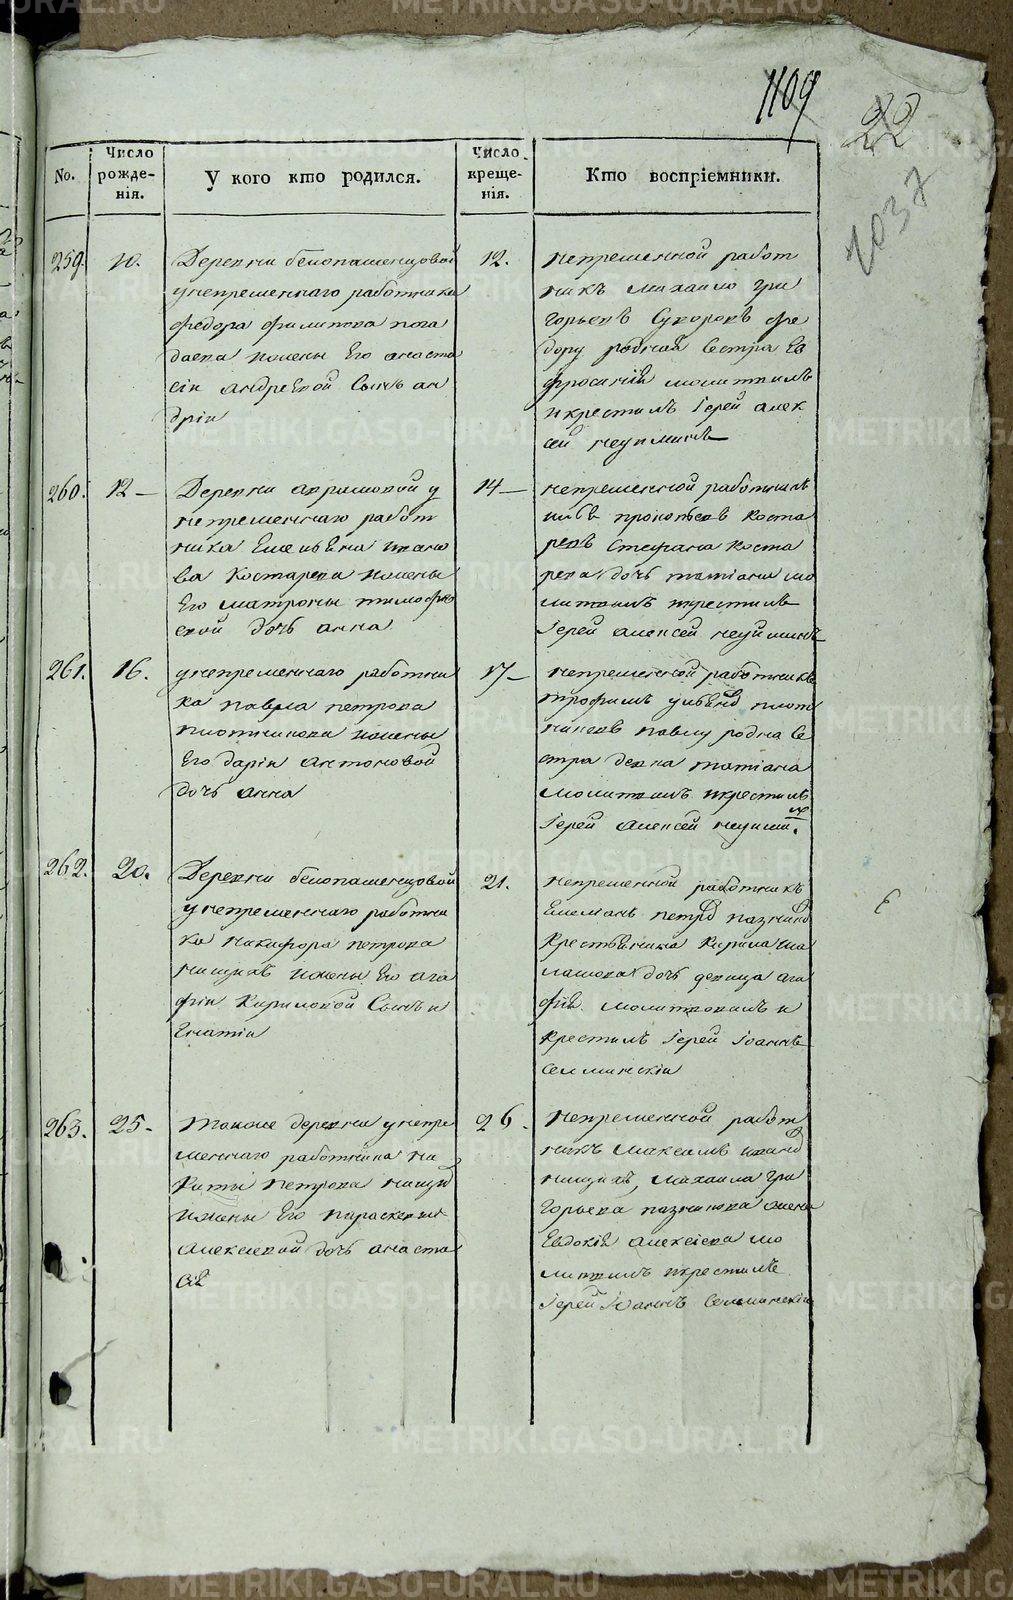 1109
22
1037
No.
Число рожде-
нія.
У кого кто родился.
Число креще-
нія.
Кто воспріемники.
259.
10.
Деревни белопашенцовой
у непременнаго работника
федора филипова пога
даева ижены Его анаста
сіи андреевой Сынъ ан
дріи
12.
непременной работ
никъ михаило гри
горьевъ Суворовъ фе
дору родная Сестра Ев
фросинія молитвилъ
икрестилъ Іерей алек
сей неуиминъ
260.
12 —
Деревни аврамовой у
непременнаго работ
ника Емельяна ивано
ва Костарева ижены
Его матроны тимофе
евой дочь анна
14 —
непременной работникъ
прокопьевъ Коста
ревъ Стефана Коста
рева дочь татіана мо
литвилъ икрестилъ
Іерей алексей неуиминъ
261.
16.
у непременнаго работни
ка павла петрова
плотникова ижены
Его даріи антоновой
дочь анна
17 —
непременной работникъ
трофимъ плот
никовъ павлу родна Се
стра девка татіана
молитвилъ икрестилъ
Іерей алексей неуимин.
262.
20.
Деревни белопашенцовой
у непременнаго работни
ка никифора петрова
ницихъ ижены Его ага
фіи Кириловой Сынъ и
гнатіи
21.
непременной работникъ
Емельянъ петров
Крестьянина Кирила ма
лашова дочь девица ага
фія. молитвовалъ и
крестилъ Іерей Іоаннъ
Селминскіи
263.
25.
тойже деревни у непре
меннаго работника ни
киты петрова
ижены Его параскевы
алексеевой дочь анаста
сія
26.
непременной работ
никъ максимъ иванов
михаила гри
горьева жена
Евдокія алексіева мо
литвилъ икрестилъ
Іерей Іоаннъ Селминскіи
METRIKI.GASO-URAL.RU